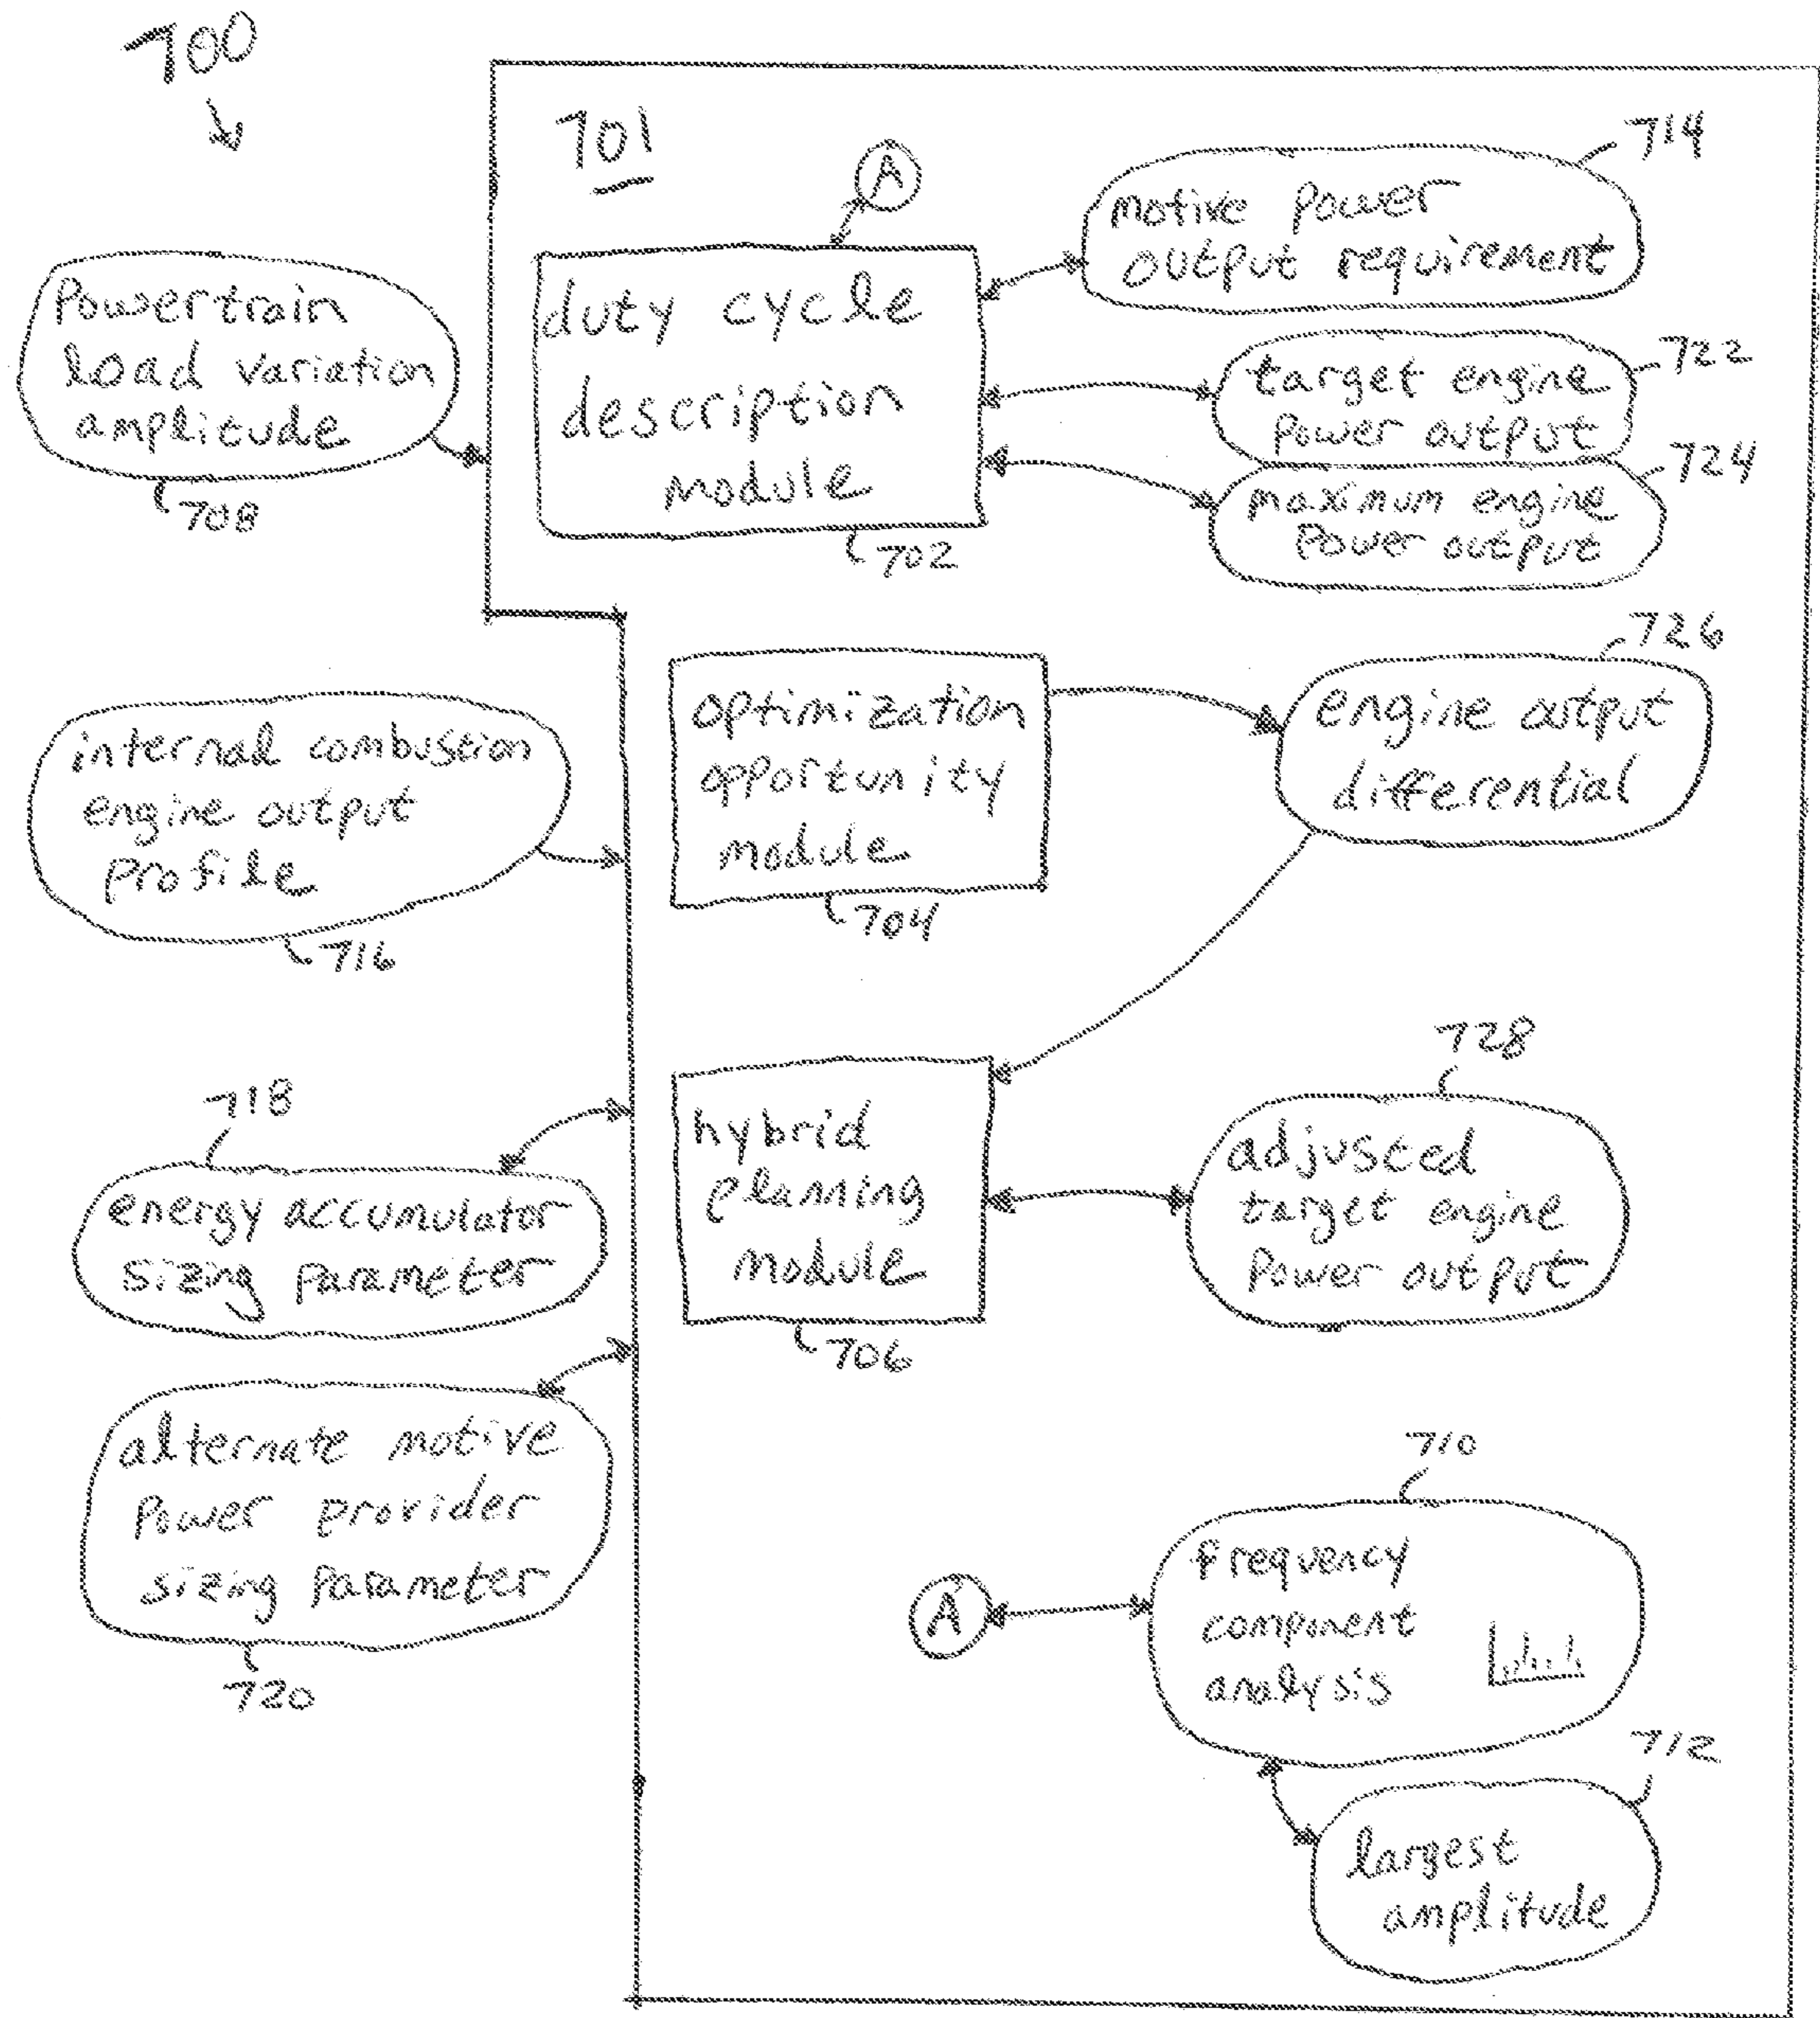 700
701
A
714
motive power
output requirement
Powertrain
load variation
amplitude
708
duty cycle
description
module
702
target engine
Power output
722
maximum engine
Power output
724
internal combustion
engine output
profile
716
optimization
opportunity
module
704
726
engine output
differential
718
energy accumulator
sizing parameter
hybrid
planning
module
706
728
adjusted
target engine
Power output
alternate motive
Power provider
sizing Parameter
720
710
A
frequency
component
analysis
712
largest
amplitude